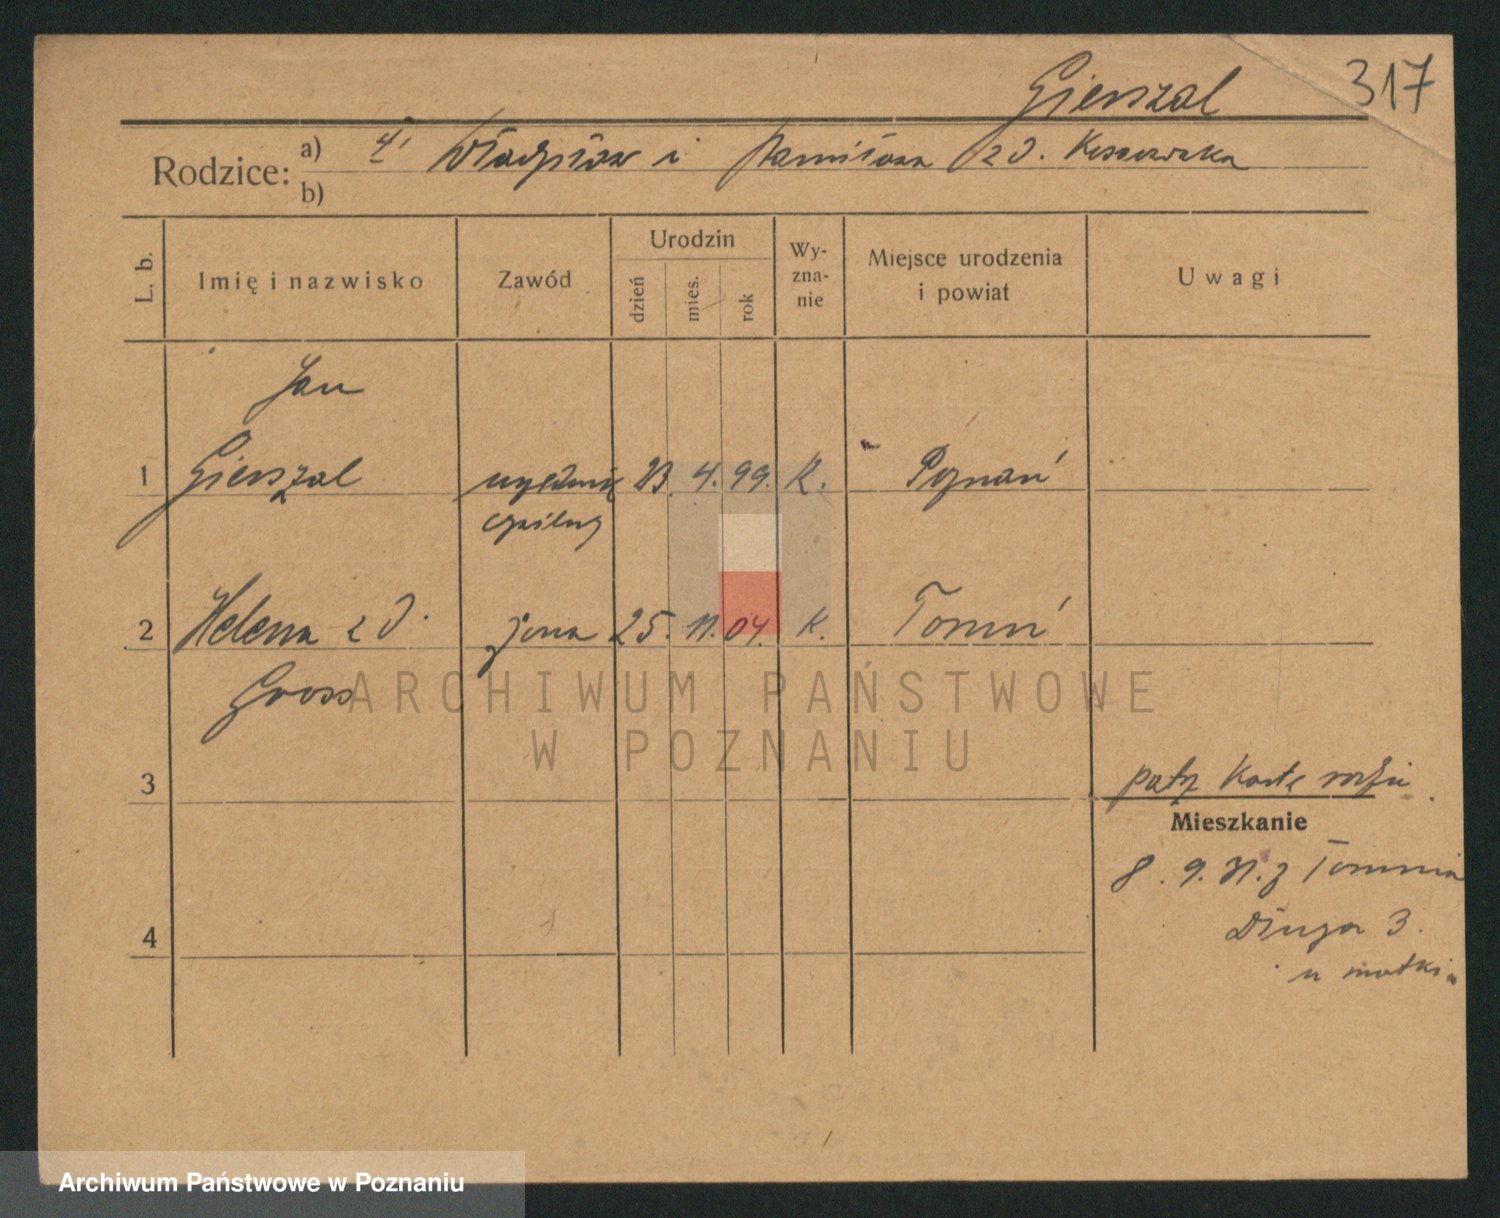 317
Gierszal
Rodzice: a) Władysław i Stanisława z d.
b)
L. b.
Imię i nazwisko
Zawód
Urodzin
dzień
mies.
rok
Wy-
zna-
nie
Miejsce urodzenia
i powiat
Uwagi
Jan
1 Gierszal urzędnik 23. 4. 99. K. Poznań
cywilny
2 Helena z d. żona 25. 11. 04. K. Toruń
Gross
3
patrz kartę
Mieszkanie
8. 9. 31. z Torunia
Długa 3.
u matki
4
ARCHIWUM PAŃSTWOWE
W POZNANIU
Archiwum Państwowe w Poznaniu